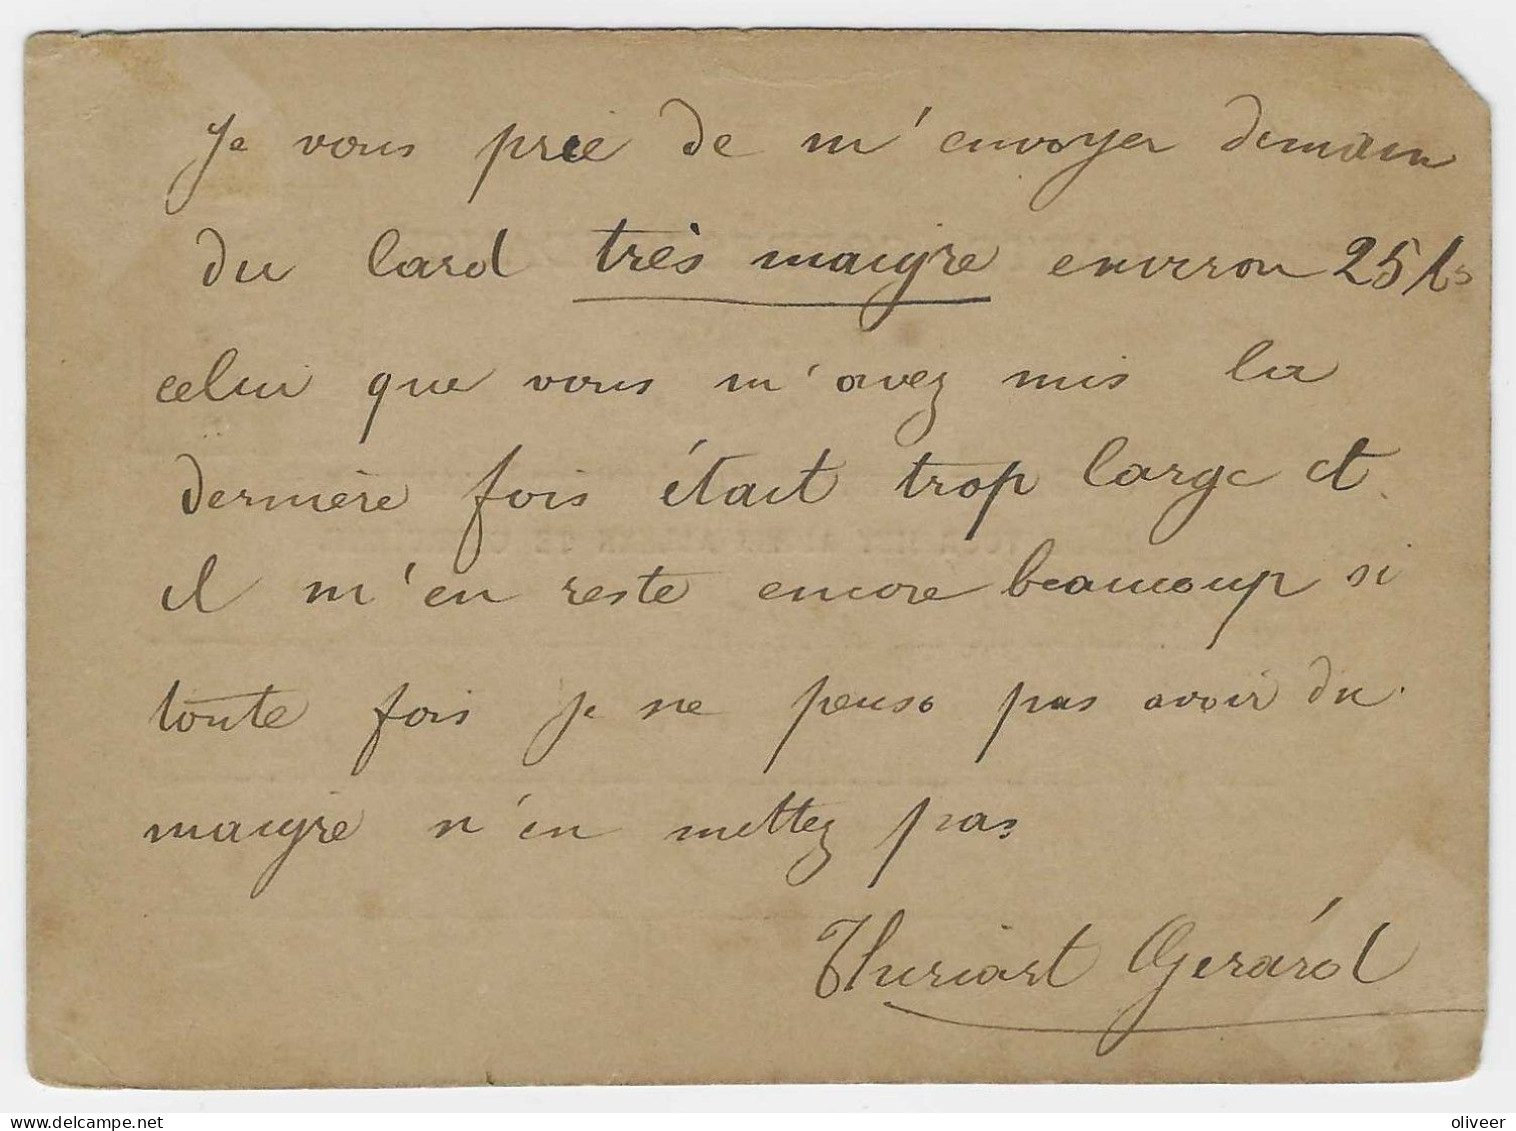 Je vous prie de m'envoyer demain
du lard très maigre environ 25 ks
celui que vous m'avez mis la
dernière fois était trop large et
il m'en reste encore beaucoup si
toute fois je ne pense pas avoir du
maigre n'en mettez pas
Thuriart Gérard
oliveer